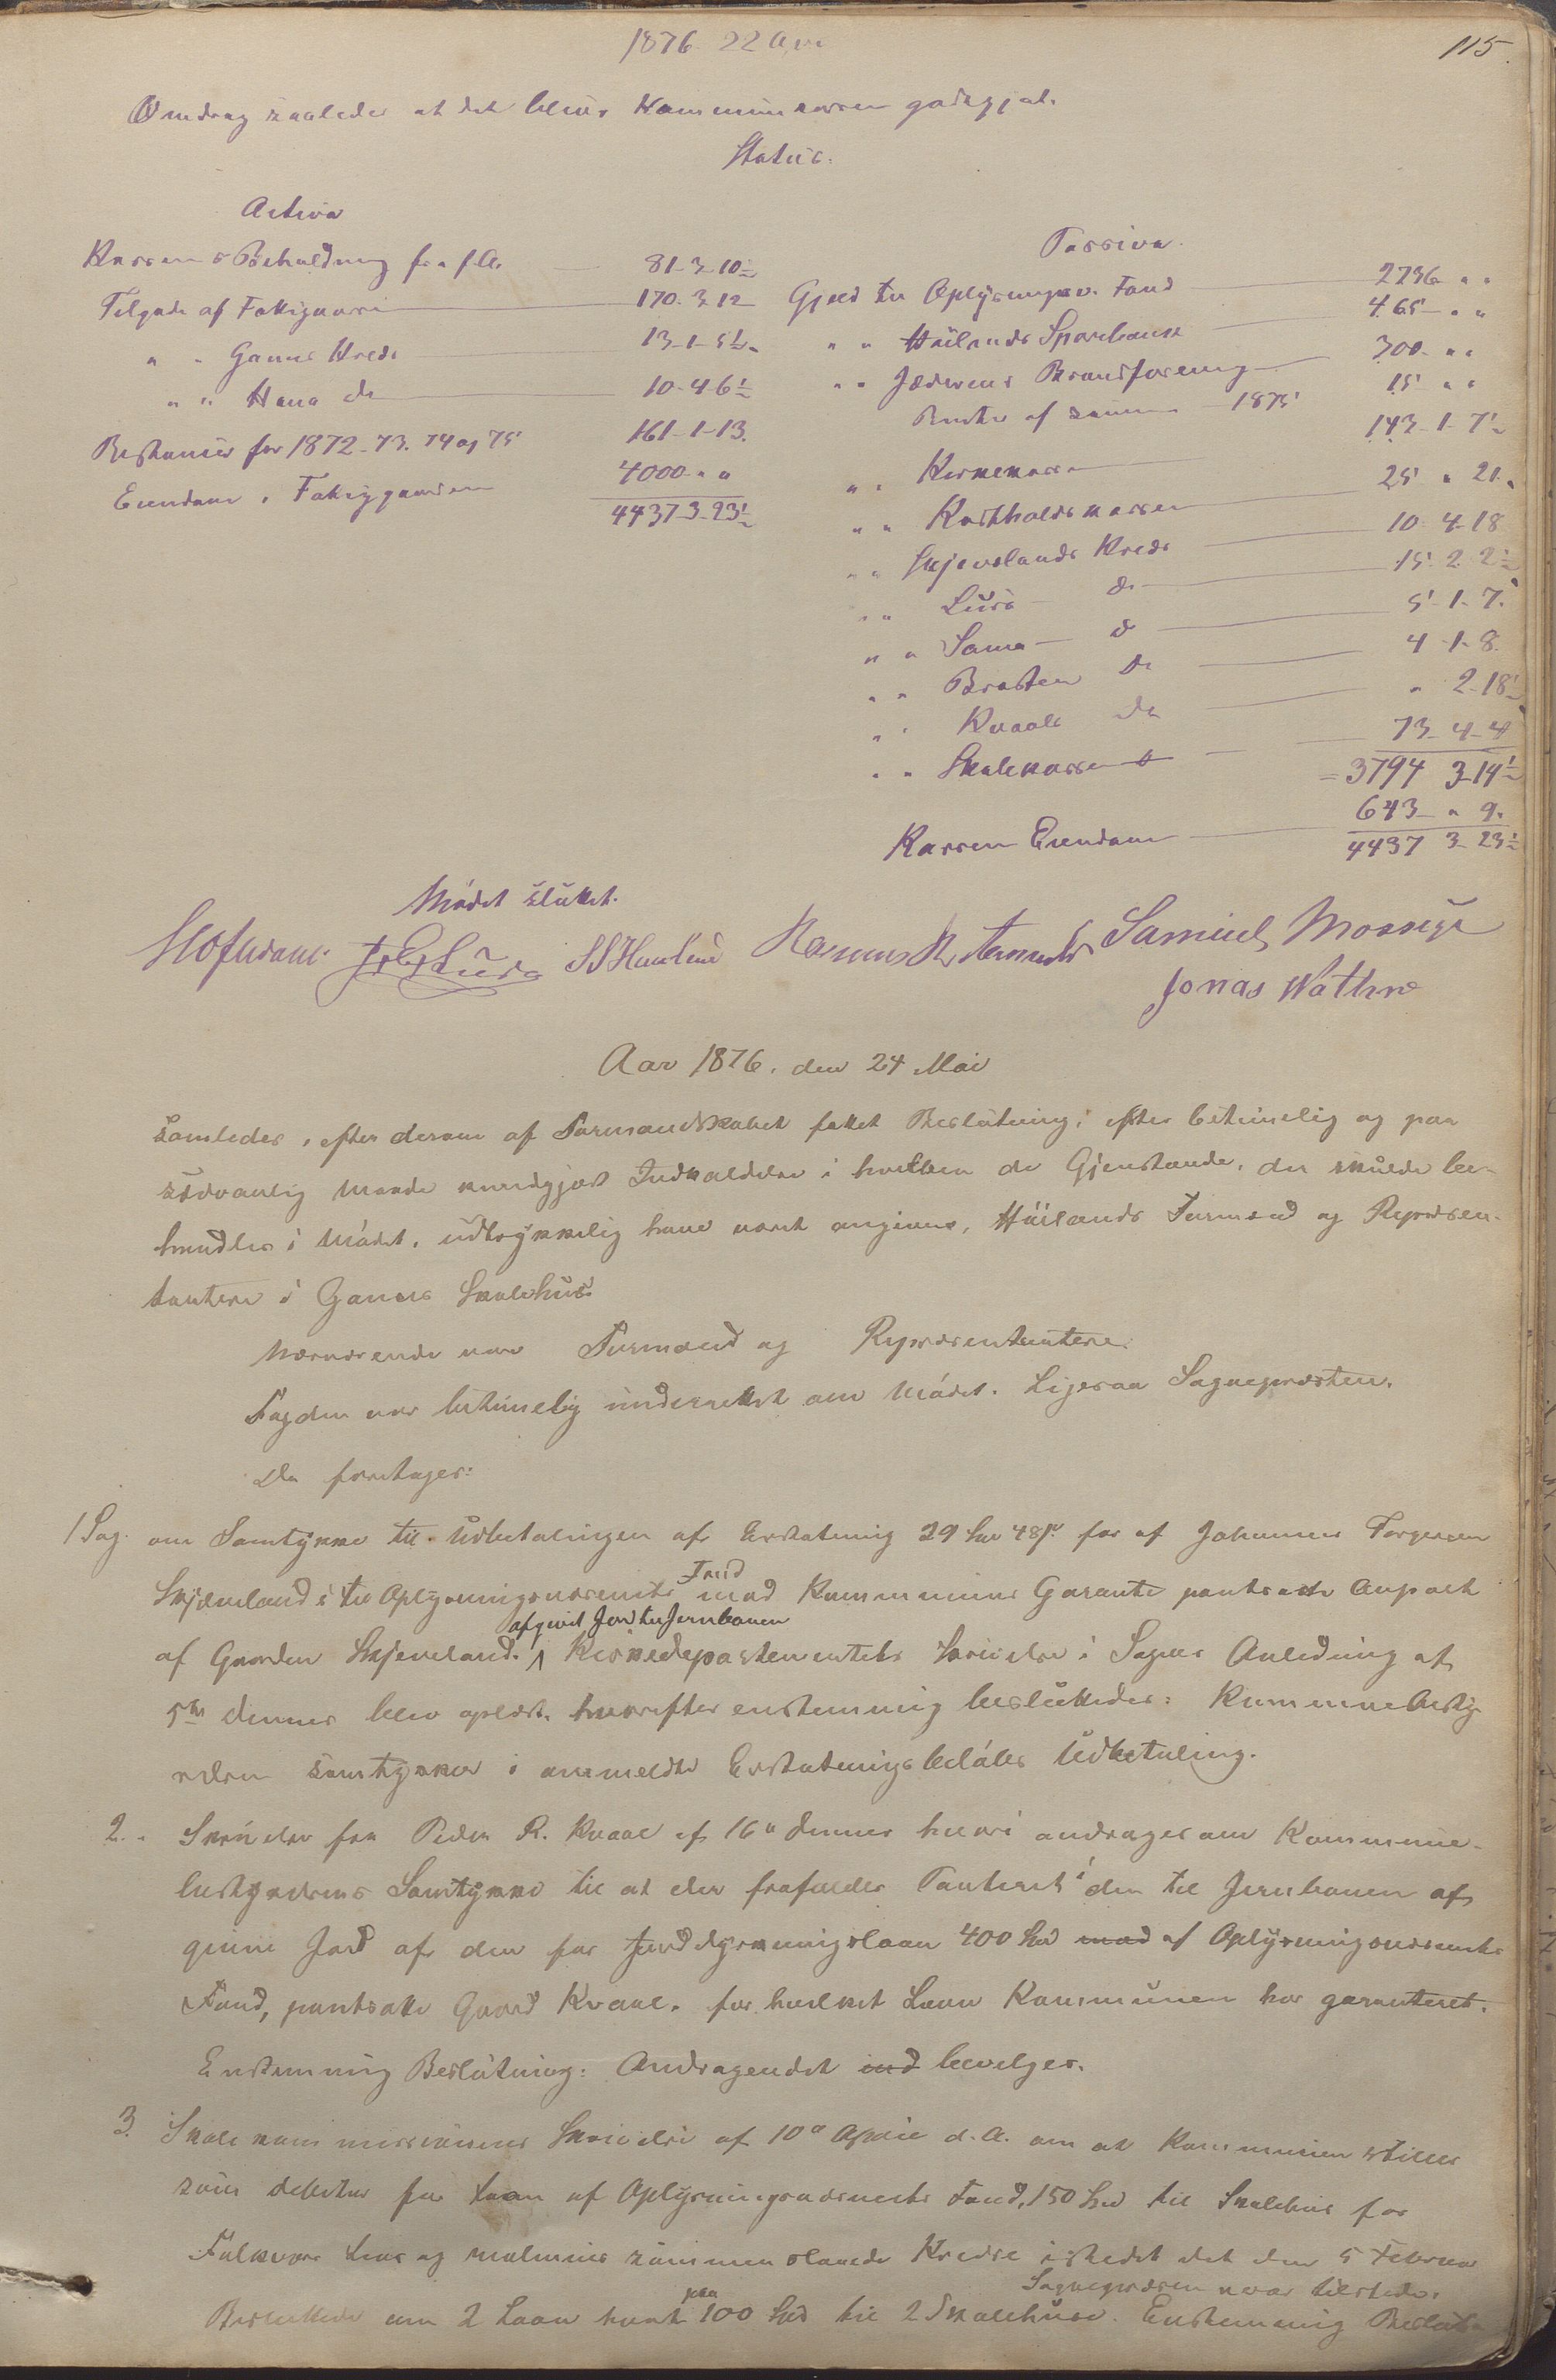 1876 22 Apr
115.
Omdrag saaledes at det blives Kommunekassen godtgjort.
Status.
Activa
Kassens Beholdning fra f.A. 81-3-10½
Tilgode af Fattigvæsen 170.3.12
" " Ganns Kreds 13-1-5½
" " Hana do 10-4-6½
Restancer for 1872-73. 74 og 75 161-1-13.
Eiendom i Fattiggaarden 4000 " "
4437-3-23½
Passiva.
Gjæld til Oplysningsv. Fond 2736 " "
" " Høilands Sparebank 465 " "
" " Jæderens Brandforening 300 " "
Rente af samme 1875 15 " "
" " Kirkekassen 143-1-7½
" " Kostholdskassen 25 " 21.
" " Skjevelands Kreds 10-4-18
" " Lura do 15-2-2½
" " Soma do 5-1-7.
" " Brasten do 4-1-8.
" " Kvaale do " 2-18½
" " Skolekassen 73-4-4
= 3794 3-14½
Kassens Eiendom 643 " 9.
4437 3-23½
Mødet sluttet.
Samuel Mossige
Jonas Wathne
Aar 1876, den 24 Mai
samledes, efter derom af Formandskabet fattet Beslutning, efter betimelig og paa
sædvanlig Maade kundgjort Indkaldelse i hvilken de Gjenstande, der skulde be-
handles i Mødet, udtrykkelig have været angivne, Høilands Formænd og Repræsen-
tantere i Ganns Skolehus.
Nærværende var Formænd og Repræsentantere.
Fogden var betimelig underrettet om Mødet. Ligesaa Sognepræsten.
Da foretages:
1 Sag. om Samtykke til Udbetalingen af Erstatning 29 Spd 48 s. for af Johannes Torgersen
Skjæveland's til Oplysningsvæsenets Fond med Kommunens Garanti pantsatte Anpart
af Gaarden Skjeveland afgivet Jord til Jernbanen. Kirkedepartementets Skrivelse i Sagens Anledning af
5te dennes blev oplæst, hvorefter enstemmig besluttedes: Kommunebesty-
relsen samtykker i anmeldte Erstatningsbeløbs Udbetaling.
2. " Skrivelse fra Peder R. Kvaal af 16 " dennes hvori andrages om Kommune-
bestyrelsens Samtykke til at der frafaldes Panteret i den til Jernbanen af-
givne Jord af den for Jorddyrkningslaan 400 Spd med af Oplysningsvæsenets
Fond, pantsatte Gaard Kvaal, for hvilket Laan Kommunen har garanteret.
Enstemmig Beslutning: Andragendet ind bevilges.
3. Skolekommissionens Skrivelse af 10 " April d.A. om at Kommunen stilles
som debitor for Laan af Oplysningsvæsenets Fond, 150 Spd til Skolehus for
Folkvor og Malmins sammenslaaede Kredse istedet det den 5 Februar
Sognepræsten var tilstede.
Besluttede om 2 Laan hvert paa 100 Spd til 2 Skolehuse. Enstemmig Beslut